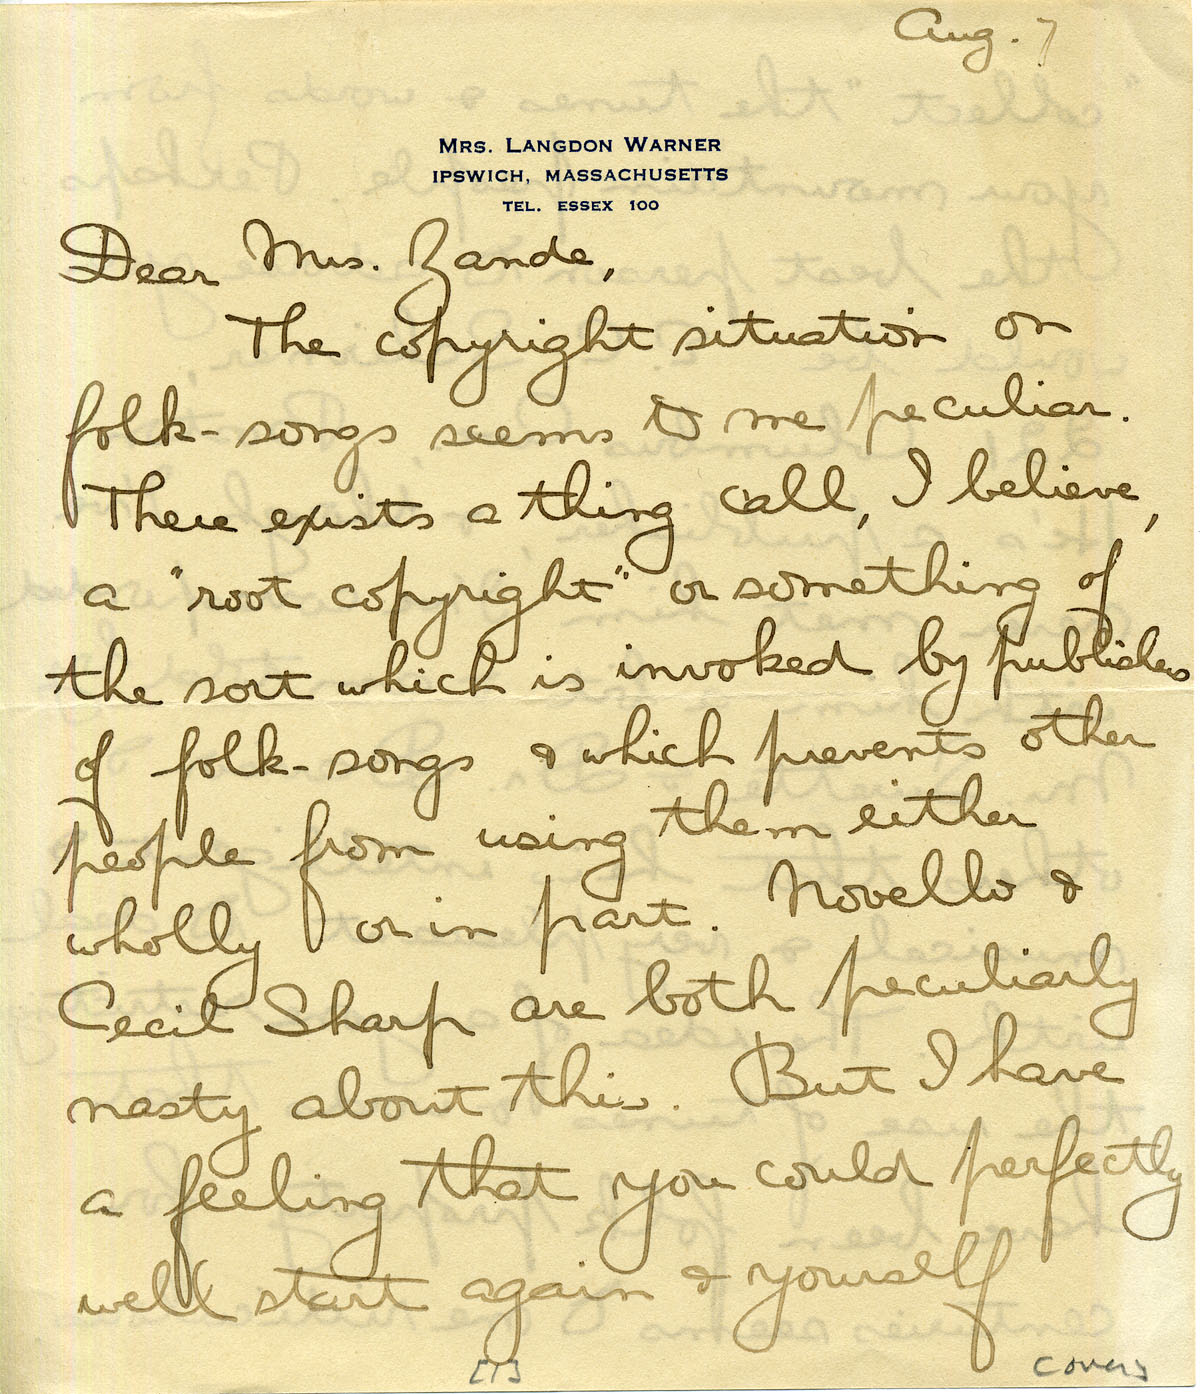 Aug. 7
MRS. LANGDON WARNER
IPSWICH, MASSACHUSETTS
TEL. ESSEX 100
Dear Mrs. Zande,
The copyright situation on
folk-songs seems to me peculiar.
There exists a thing call, I believe,
a "root copyright" or something of
the sort which is invoked by publishers
of folk-songs & which prevents other
people from using them either
wholly or in part. Novello &
Cecil Sharp are both peculiarly
nasty about this. But I have
a feeling that you could perfectly
well start again & yourself
[1] (over)